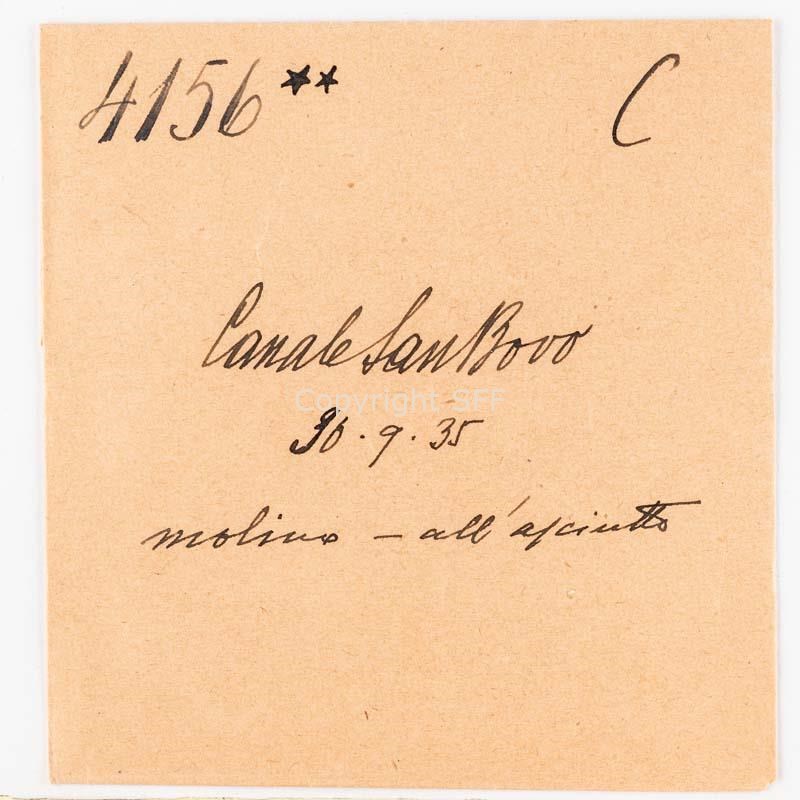 4156** C
Canale San Bovo
Copyright SFF
30.9.35
molino - all'asciutto